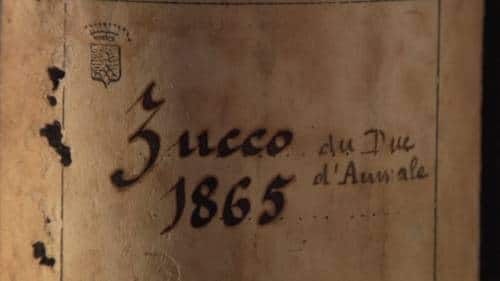 Zucco du Duc
1865 d'Aumale